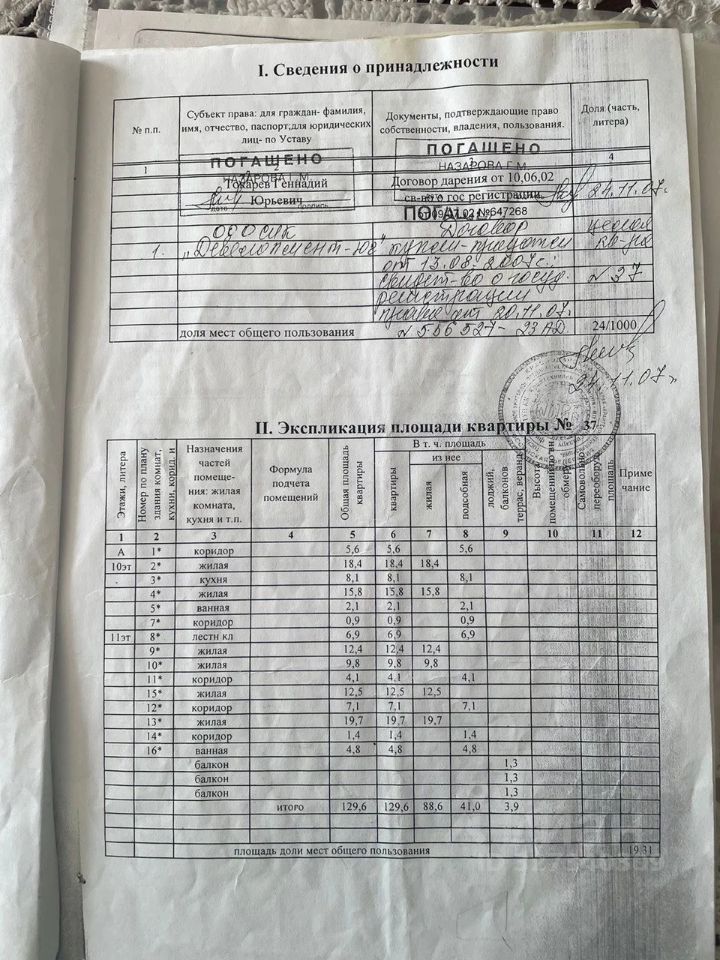 I. Сведения о принадлежности
№ п.п. Субъект права: для граждан- фамилия, имя, отчество, паспорт;для юридических лиц- по Уставу Документы, подтверждающие право собственности, владения, пользования. Доля (часть, литера)
ПОГАШЕНО ПОГАШЕНО
1 2 3 4
НАЗАРОВА Г.М. НАЗАРОВА Г.М.
Токарев Геннадий Договор дарения от 10,06,02
Юрьевич св-во о гос регистрации 24.11.07.
№647268
ООО Договор целая
1. „Девелопмент-Юг" купли-продажи кв-ра
от 13.08.2007г.; №37
свидет-во о госуд.
регистрации
права от 20.11.07.
доля мест общего пользования №556527-23АД 24/1000
24.11.07г
II. Экспликация площади квартиры № 37
Этажи, литера Номер по плану здания комнат, кухни, корид. и Назначения частей помеще-ния: жилая комната, кухня и т.п. Формула подчета помещений Общая площадь квартиры В т. ч. площадь квартиры из нее жилая подсобная лоджий, балконов террас, веранд Высота помещений по вн обмеру Самовольно переоборуд. площадь Приме чание
1 2 3 4 5 6 7 8 9 10 11 12
А 1* коридор 5,6 5,6 5,6
10эт 2* жилая 18,4 18,4 18,4
3* кухня 8,1 8,1 8,1
4* жилая 15,8 15,8 15,8
5* ванная 2,1 2,1 2,1
7* коридор 0,9 0,9 0,9
11эт 8* лестн кл 6,9 6,9 6,9
9* жилая 12,4 12,4 12,4
10* жилая 9,8 9,8 9,8
11* коридор 4,1 4,1 4,1
15* жилая 12,5 12,5 12,5
12* коридор 7,1 7,1 7,1
13* жилая 19,7 19,7 19,7
14* коридор 1,4 1,4 1,4
16* ванная 4,8 4,8 4,8
балкон 1,3
балкон 1,3
балкон 1,3
итого 129,6 129,6 88,6 41,0 3,9
площадь доли мест общего пользования 19,31